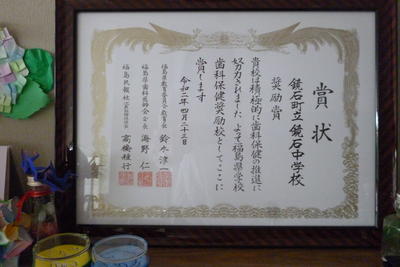 賞状
奨励賞
鏡石町立鏡石中学校
貴校は積極的に歯科保健の推進に
努力されました よって福島県学校
歯科保健奨励校としてここに
賞します
令和二年四月二十三日
福島県教育委員会教育長 鈴木淳一
福島県歯科医師会会長 海野仁
福島民報社代表取締役社長 高橋雅行